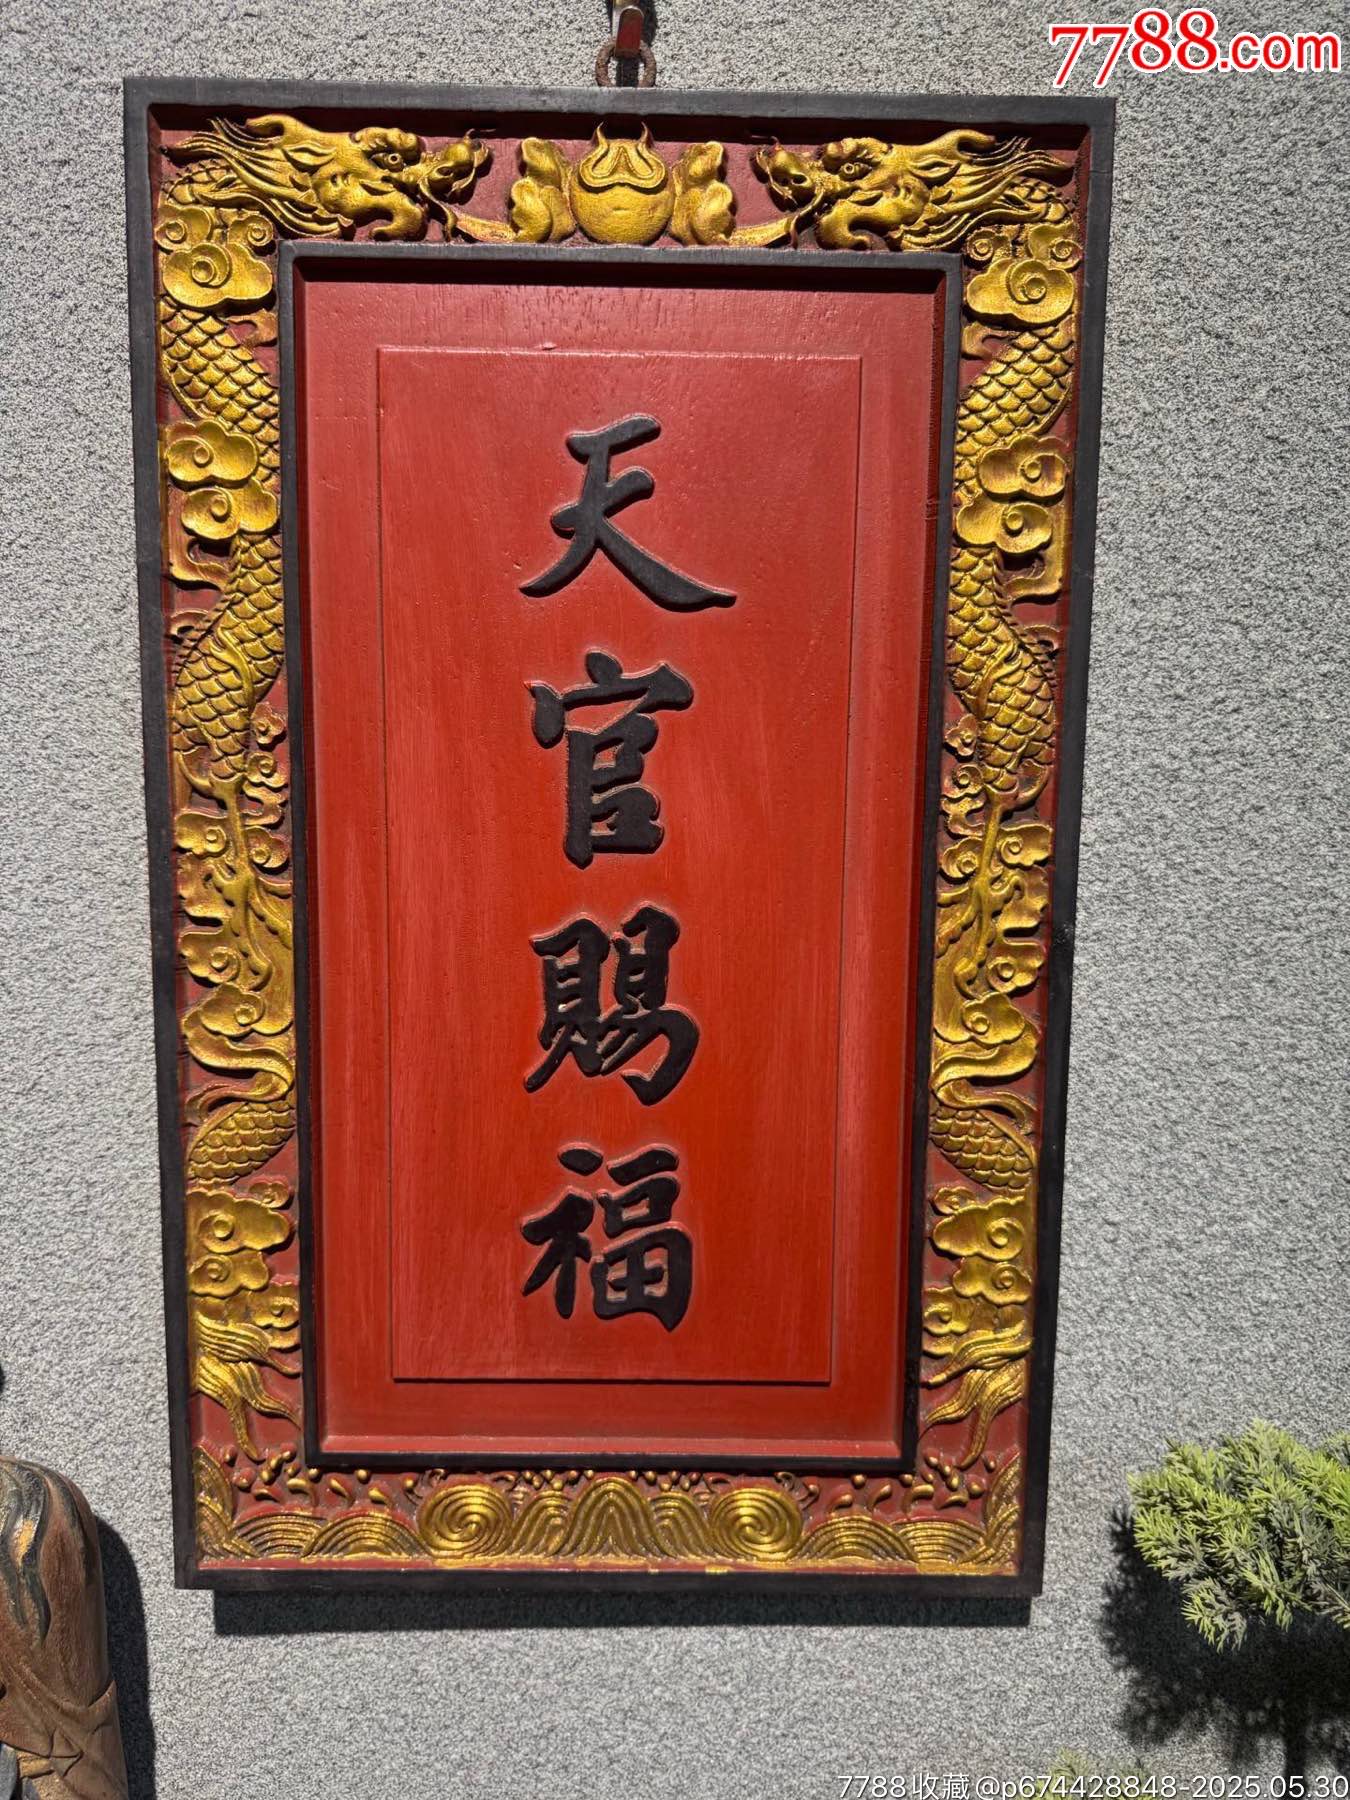 7788.com
天
官
賜
福
7788收藏@p674428848-2025.05.30